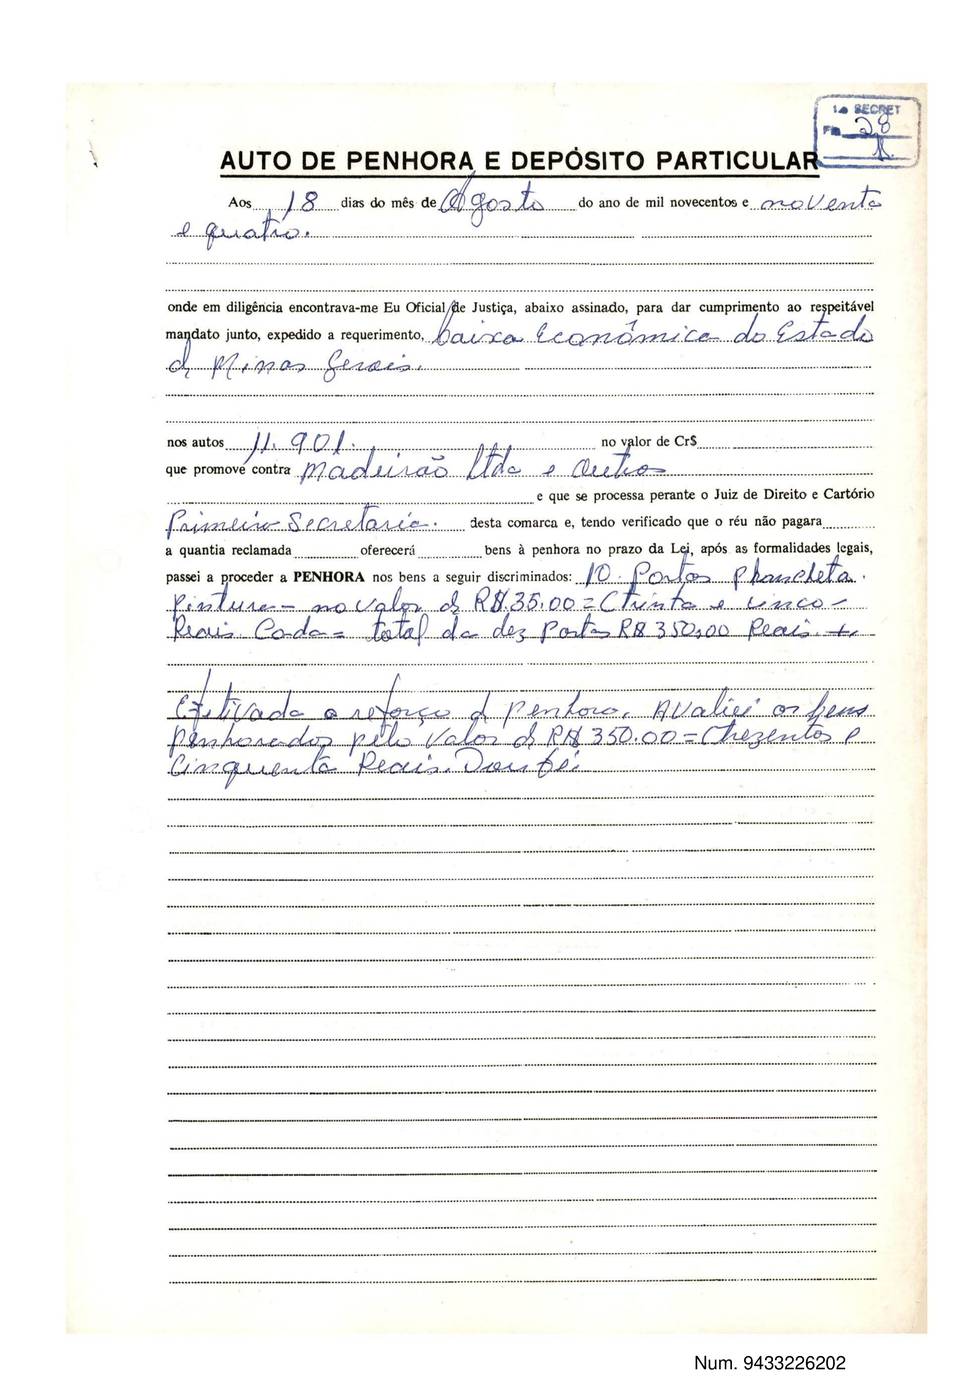 1a SECRET
Fls. 28
AUTO DE PENHORA E DEPÓSITO PARTICULAR
Aos 18 dias do mês de Agosto do ano de mil novecentos e noventa
e quatro.
onde em diligência encontrava-me Eu Oficial de Justiça, abaixo assinado, para dar cumprimento ao respeitável
mandato junto, expedido a requerimento, Caixa Econômica do Estado
d Minas Gerais.
nos autos 11.901. no valor de Cr$
que promove contra Madeirão Ltda e Outros
e que se processa perante o Juiz de Direito e Cartório
Primeira Secretaria. desta comarca e, tendo verificado que o réu não pagara
a quantia reclamada oferecerá bens à penhora no prazo da Lei, após as formalidades legais,
passei a proceder a PENHORA nos bens a seguir discriminados: 10 Portas Phancheta
Pintura - no valor d R$ 35,00 = (trinta e cinco -
Reais Cada = total da dez Portas R$ 350,00 Reais
Efetivada o reforço d penhora, Avaliei os bens
penhorados pelo valor d R$ 350.00 = (trezentos e
Cinquenta Reais. Dou fé.
Num. 9433226202